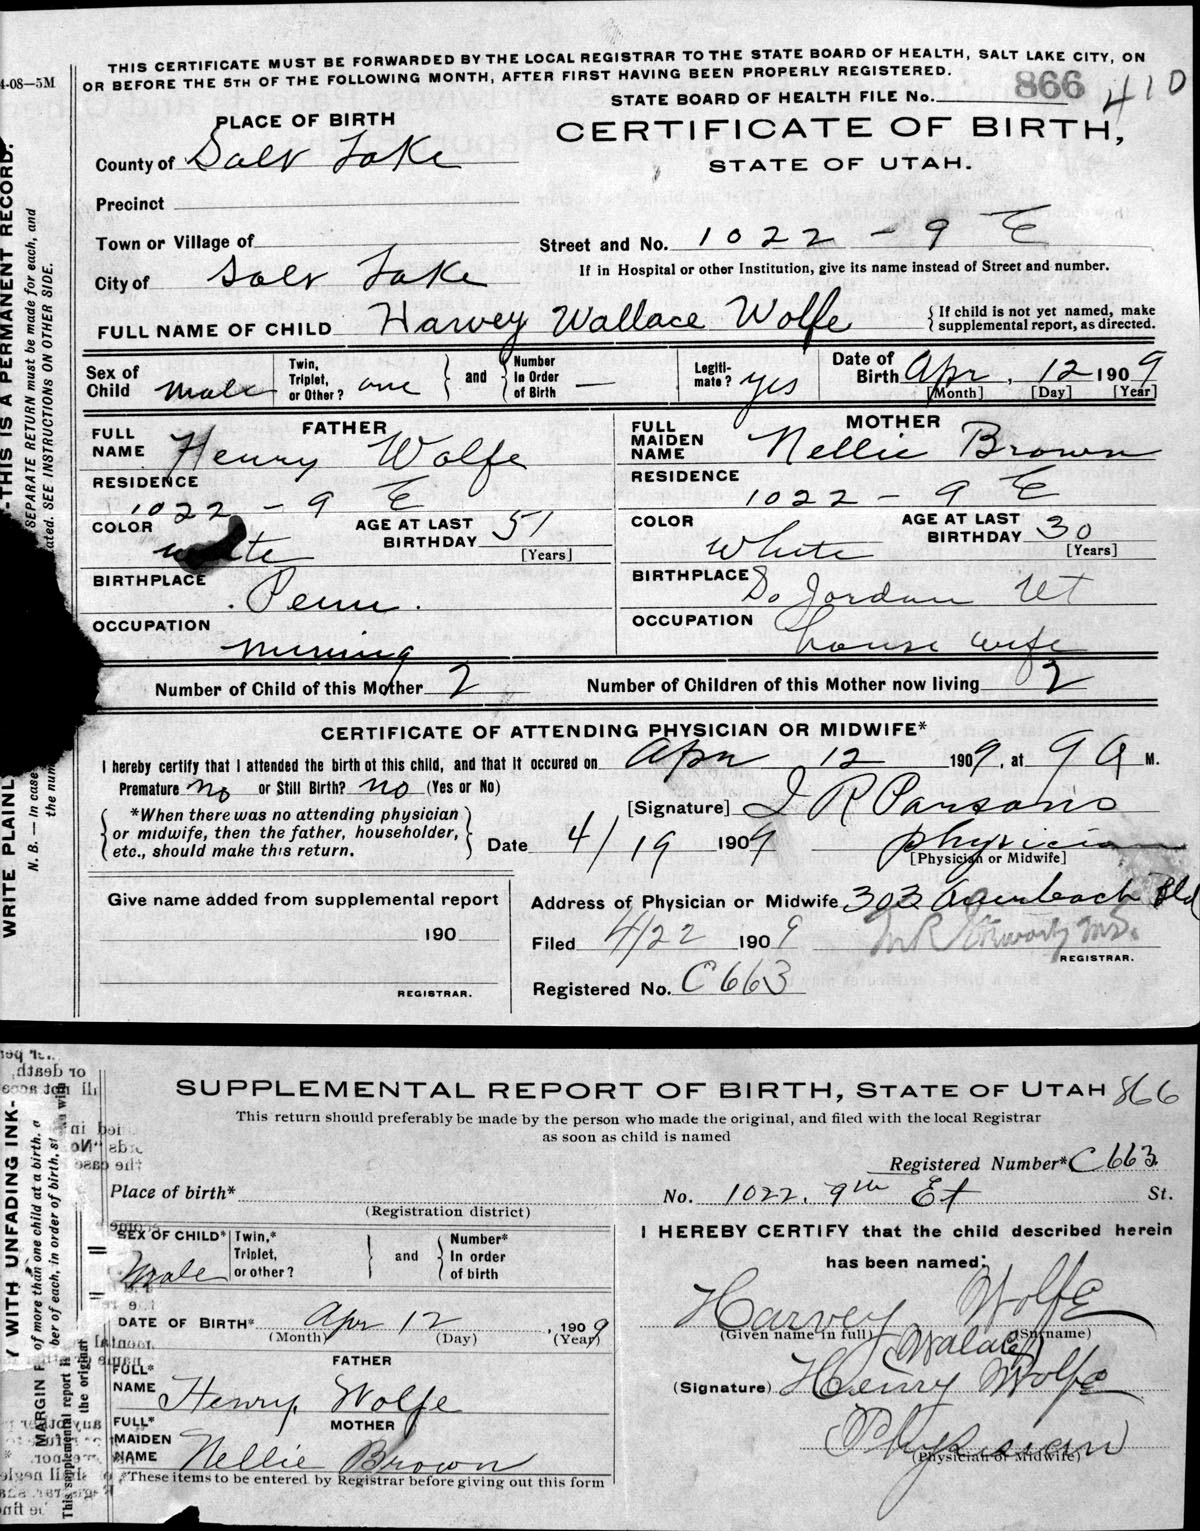 4-08—5M
THIS CERTIFICATE MUST BE FORWARDED BY THE LOCAL REGISTRAR TO THE STATE BOARD OF HEALTH, SALT LAKE CITY, ON
OR BEFORE THE 5TH OF THE FOLLOWING MONTH, AFTER FIRST HAVING BEEN PROPERLY REGISTERED.
STATE BOARD OF HEALTH FILE No. 866 410
PLACE OF BIRTH
CERTIFICATE OF BIRTH,
STATE OF UTAH.
County of Salt Lake
Precinct
Town or Village of
Street and No. 1022 - 9 E
City of Salt Lake
If in Hospital or other Institution, give its name instead of Street and number.
FULL NAME OF CHILD Harvey Wallace Wolfe
{If child is not yet named, make supplemental report, as directed.
Sex of Child male
Twin, Triplet, or Other? one } and { Number In Order of Birth —
Legiti-mate? yes
Date of Birth Apr, 12 1909
[Month] [Day] [Year]
FATHER
FULL NAME Henry Wolfe
RESIDENCE 1022 - 9 E
COLOR white
AGE AT LAST BIRTHDAY 51 [Years]
BIRTHPLACE Penn.
OCCUPATION mining
MOTHER
FULL MAIDEN NAME Nellie Brown
RESIDENCE 1022 - 9 E
COLOR White
AGE AT LAST BIRTHDAY 30 [Years]
BIRTHPLACE So Jordan Ut
OCCUPATION house wife
Number of Child of this Mother 2
Number of Children of this Mother now living 2
CERTIFICATE OF ATTENDING PHYSICIAN OR MIDWIFE*
I hereby certify that I attended the birth of this child, and that it occured on Apr 12 1909, at 9 A M.
Premature? no or Still Birth? no (Yes or No)
[Signature] J R Parsons
{*When there was no attending physician or midwife, then the father, householder, etc., should make this return.}
Date 4/19 1909
physician
[Physician or Midwife]
Give name added from supplemental report
190
REGISTRAR.
Address of Physician or Midwife 303 Auerbach Bld
Filed 4/22 1909
REGISTRAR.
Registered No. C663
WRITE PLAINLY WITH UNFADING INK-
-THIS IS A PERMANENT RECORD.
SEPARATE RETURN must be made for each, and
ated. SEE INSTRUCTIONS ON OTHER SIDE.
N. B. — In case
the num
SUPPLEMENTAL REPORT OF BIRTH, STATE OF UTAH 866
This return should preferably be made by the person who made the original, and filed with the local Registrar
as soon as child is named
Registered Number* C663
Place of birth* No. 1022. 9th Et St.
(Registration district)
SEX OF CHILD* Male
Twin,* Triplet, or other? } and { Number* In order of birth
DATE OF BIRTH* Apr 12, 1909
(Month) (Day) (Year)
FATHER
FULL* NAME Henry Wolfe
MOTHER
FULL* MAIDEN NAME Nellie Brown
*These items to be entered by Registrar before giving out this form
I HEREBY CERTIFY that the child described herein
has been named:
Harvey Wolfe
(Given name in full) (Surname)
Walace
(Signature) Henry Wolfe
Physician
(Physician or Midwife)
MARGIN
of more than one child at a birth, a
ber of each, in order of birth, st
This supplemental report
the original